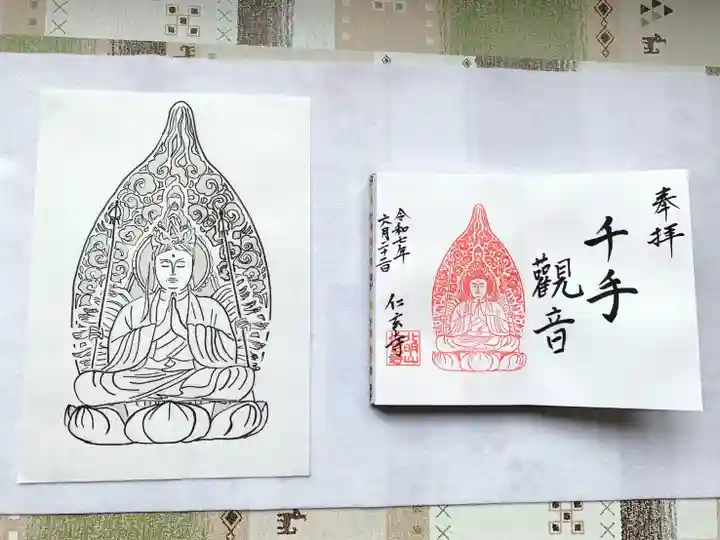 奉拝
千手
觀音
仁玄寺
令和七年
六月二十二日